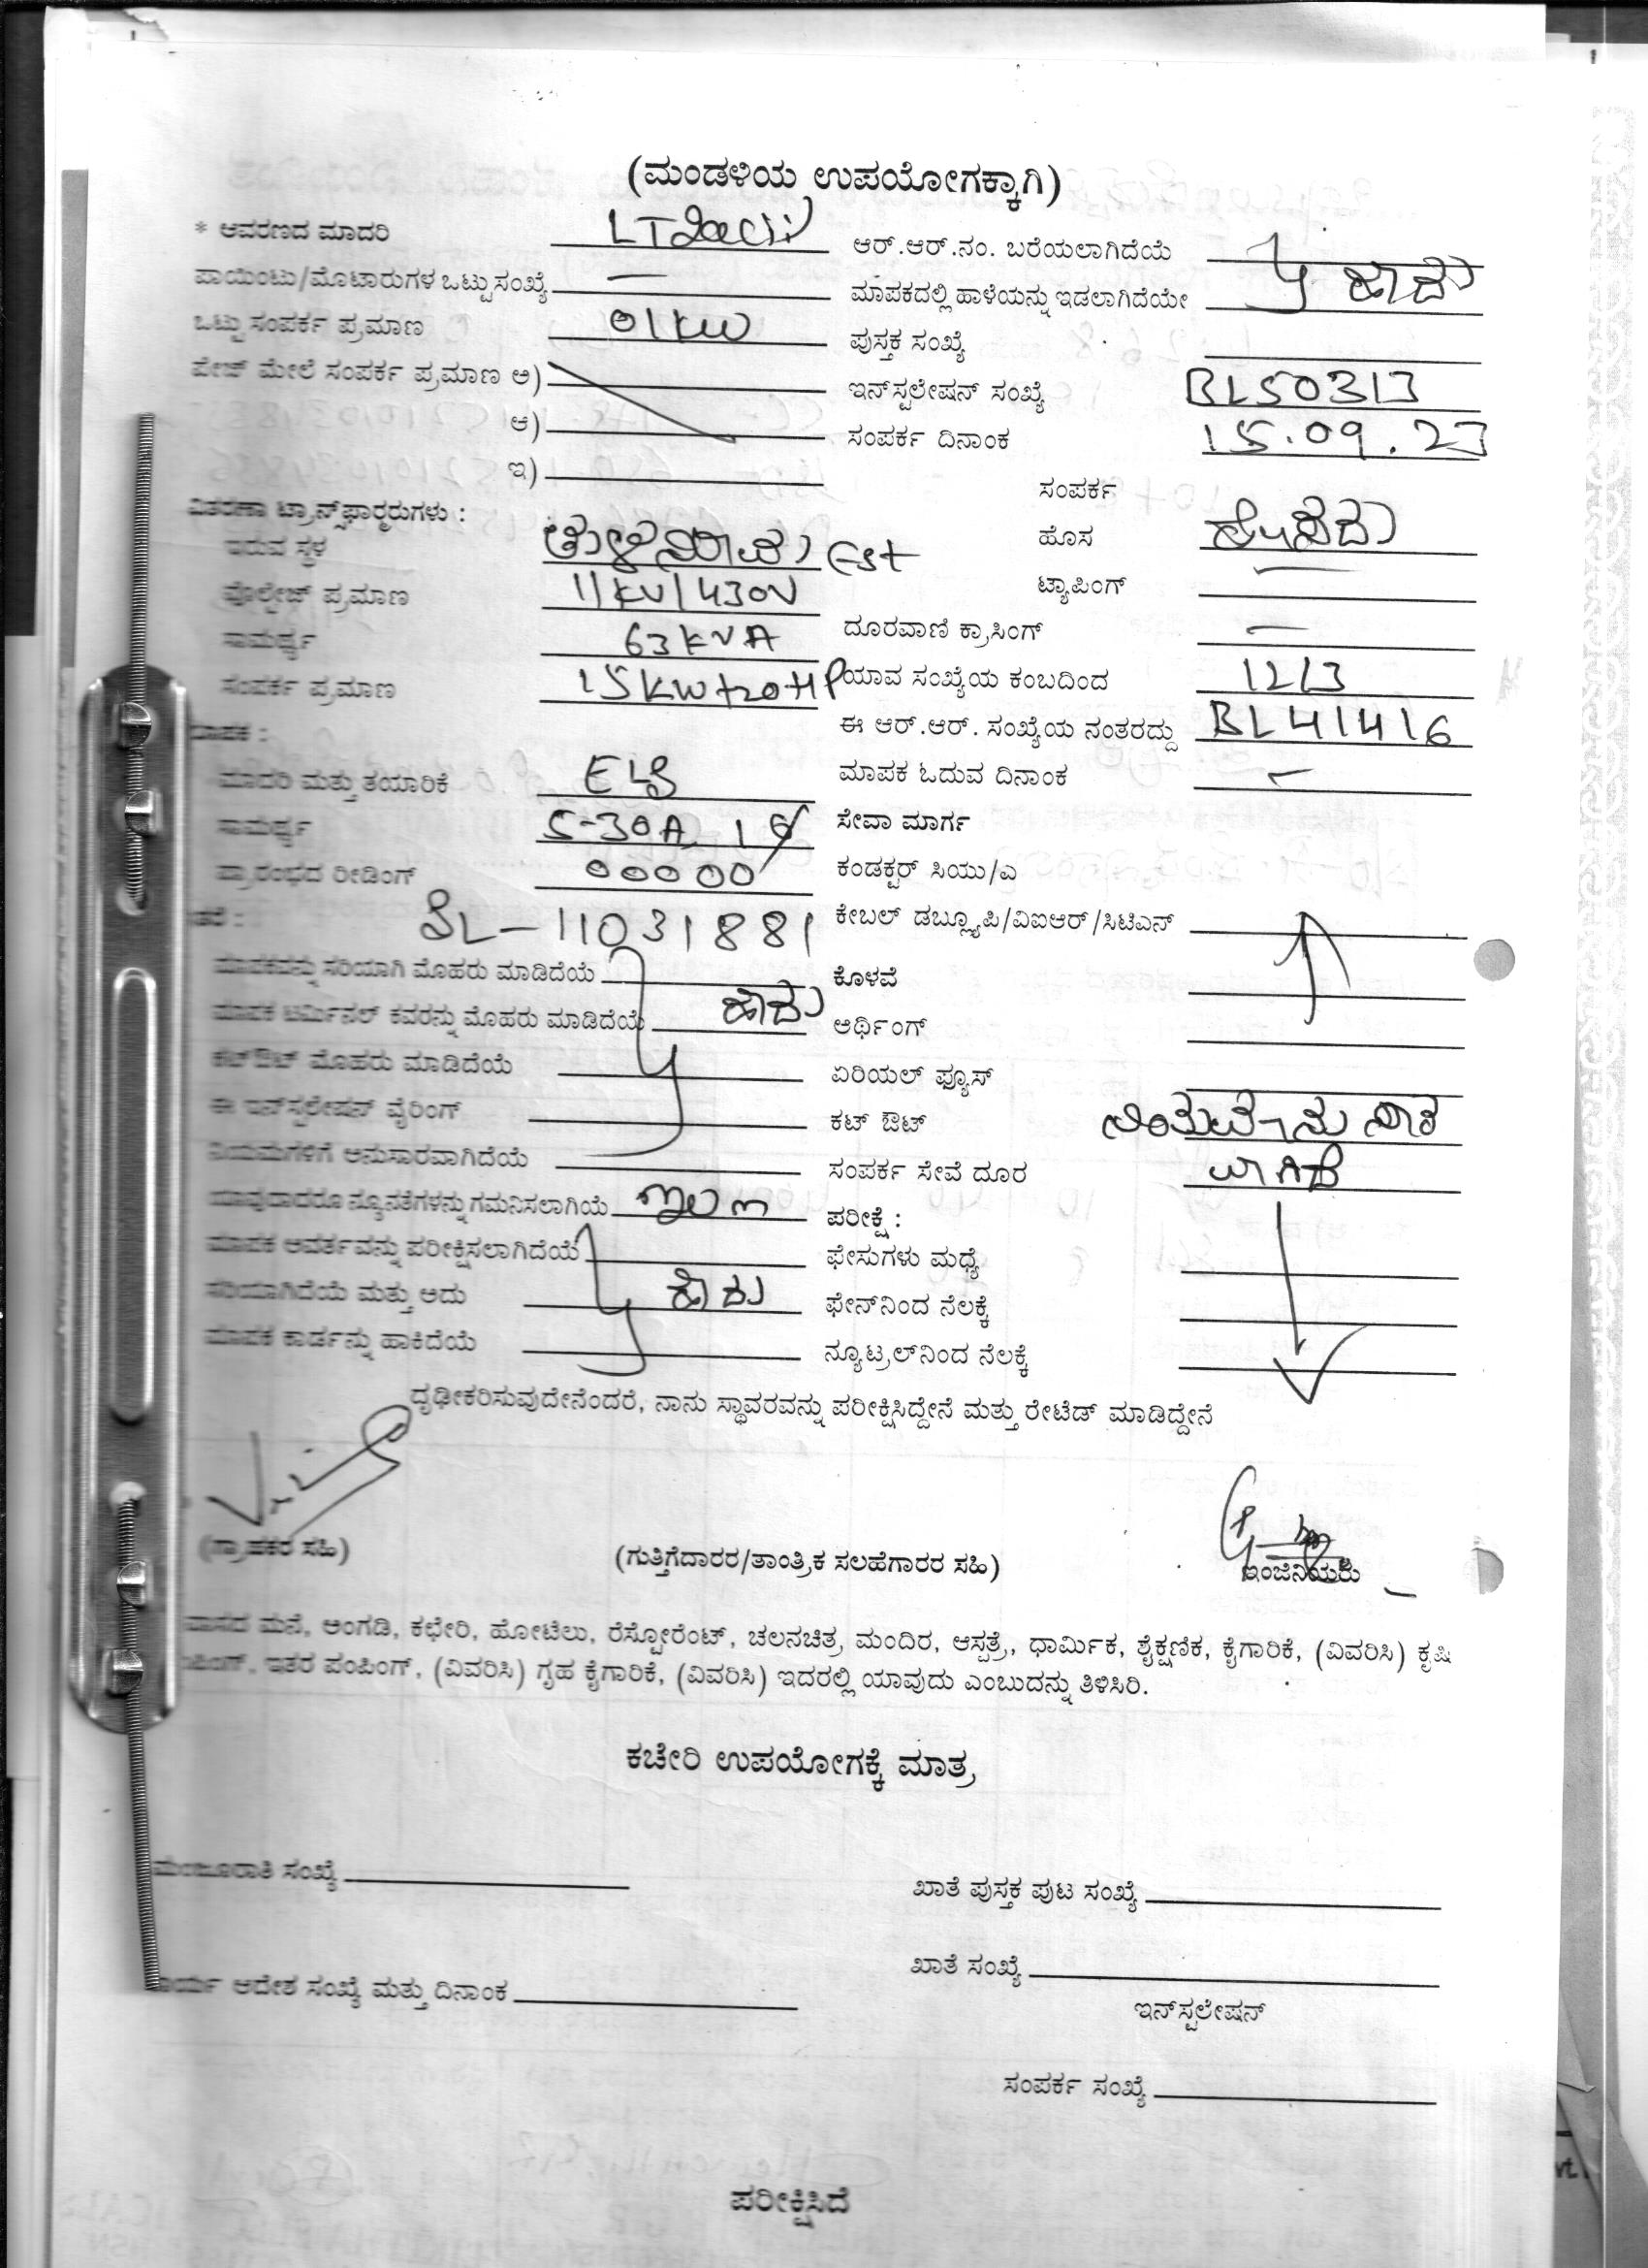 (ಮಂಡಳಿಯ ಉಪಯೋಗಕ್ಕಾಗಿ)
* ಆವರಣದ ಮಾದರಿ LT ಆರ್.ಆರ್.ನಂ. ಬರೆಯಲಾಗಿದೆಯೆ
ಪಾಯಿಂಟು/ಮೊಟಾರುಗಳ ಒಟ್ಟು ಸಂಖ್ಯೆ — ಮಾಪಕದಲ್ಲಿ ಹಾಳೆಯನ್ನು ಇಡಲಾಗಿದೆಯೇ ಹೌದು
ಒಟ್ಟು ಸಂಪರ್ಕ ಪ್ರಮಾಣ 01KW ಪುಸ್ತಕ ಸಂಖ್ಯೆ
ಪೇಜ್ ಮೇಲೆ ಸಂಪರ್ಕ ಪ್ರಮಾಣ ಅ) ಇನ್‌ಸ್ಟಲೇಷನ್ ಸಂಖ್ಯೆ BL50313
ಆ) ಸಂಪರ್ಕ ದಿನಾಂಕ 15.09.23
ಇ)
ಸಂಪರ್ಕ
ವಿತರಣಾ ಟ್ರಾನ್ಸ್‌ಫಾರ್ಮರುಗಳು :
ಇರುವ ಸ್ಥಳ Est ಹೊಸ
ವೊಲ್ಟೇಜ್ ಪ್ರಮಾಣ 11KV/430V ಟ್ಯಾಪಿಂಗ್ —
ಸಾಮರ್ಥ್ಯ 63KVA ದೂರವಾಣಿ ಕ್ರಾಸಿಂಗ್ —
ಸಂಪರ್ಕ ಪ್ರಮಾಣ 15KW+20HP ಯಾವ ಸಂಖ್ಯೆಯ ಕಂಬದಿಂದ 12/3
ಮಾಪಕ : ಈ ಆರ್.ಆರ್. ಸಂಖ್ಯೆಯ ನಂತರದ್ದು BL41416
ಮಾದರಿ ಮತ್ತು ತಯಾರಿಕೆ ಮಾಪಕ ಓದುವ ದಿನಾಂಕ —
ಸಾಮರ್ಥ್ಯ 5-30A ಸೇವಾ ಮಾರ್ಗ
ಪ್ರಾರಂಭದ ರೀಡಿಂಗ್ 00000 ಕಂಡಕ್ಟರ್ ಸಿಯು/ಎ
SL-11031881 ಕೇಬಲ್ ಡಬ್ಲ್ಯೂಪಿ/ವಿಐಆರ್/ಸಿಟಿಎನ್
ಮಾಪಕವನ್ನು ಸರಿಯಾಗಿ ಮೊಹರು ಮಾಡಿದೆಯೆ ಕೊಳವೆ
ಮಾಪಕ ಟರ್ಮಿನಲ್ ಕವರನ್ನು ಮೊಹರು ಮಾಡಿದೆಯೆ ಹೌದು ಅರ್ಥಿಂಗ್
ಕಟ್‌ಔಟ್ ಮೊಹರು ಮಾಡಿದೆಯೆ ಏರಿಯಲ್ ಫ್ಯೂಸ್
ಈ ಇನ್‌ಸ್ಟಲೇಷನ್ ವೈರಿಂಗ್ ಕಟ್ ಔಟ್
ನಿಯಮಗಳಿಗೆ ಅನುಸಾರವಾಗಿದೆಯೆ ಸಂಪರ್ಕ ಸೇವೆ ದೂರ
ಯಾವುದಾದರೂ ನ್ಯೂನತೆಗಳನ್ನು ಗಮನಿಸಲಾಗಿಯೆ ಇಲ್ಲ ಪರೀಕ್ಷೆ :
ಮಾಪಕ ಆವರ್ತವನ್ನು ಪರೀಕ್ಷಿಸಲಾಗಿದೆಯೆ ಫೇಸುಗಳು ಮಧ್ಯೆ
ಸರಿಯಾಗಿದೆಯೆ ಮತ್ತು ಅದು ಹೌದು ಫೇನ್‌ನಿಂದ ನೆಲಕ್ಕೆ
ಮಾಪಕ ಕಾರ್ಡನ್ನು ಹಾಕಿದೆಯೆ ನ್ಯೂಟ್ರಲ್‌ನಿಂದ ನೆಲಕ್ಕೆ
ದೃಢೀಕರಿಸುವುದೇನೆಂದರೆ, ನಾನು ಸ್ಥಾವರವನ್ನು ಪರೀಕ್ಷಿಸಿದ್ದೇನೆ ಮತ್ತು ರೇಟೆಡ್ ಮಾಡಿದ್ದೇನೆ
(ಗ್ರಾಹಕರ ಸಹಿ) (ಗುತ್ತಿಗೆದಾರರ/ತಾಂತ್ರಿಕ ಸಲಹೆಗಾರರ ಸಹಿ) ಇಂಜಿನಿಯರು
ವಾಸದ ಮನೆ, ಅಂಗಡಿ, ಕಛೇರಿ, ಹೋಟೆಲು, ರೆಸ್ಟೋರೆಂಟ್, ಚಲನಚಿತ್ರ ಮಂದಿರ, ಆಸ್ಪತ್ರೆ, ಧಾರ್ಮಿಕ, ಶೈಕ್ಷಣಿಕ, ಕೈಗಾರಿಕೆ, (ವಿವರಿಸಿ) ಕೃಷಿ
ಪಂಪಿಂಗ್, ಇತರ ಪಂಪಿಂಗ್, (ವಿವರಿಸಿ) ಗೃಹ ಕೈಗಾರಿಕೆ, (ವಿವರಿಸಿ) ಇದರಲ್ಲಿ ಯಾವುದು ಎಂಬುದನ್ನು ತಿಳಿಸಿರಿ.
ಕಚೇರಿ ಉಪಯೋಗಕ್ಕೆ ಮಾತ್ರ
ಮಂಜೂರಾತಿ ಸಂಖ್ಯೆ ಖಾತೆ ಪುಸ್ತಕ ಪುಟ ಸಂಖ್ಯೆ
ಖಾತೆ ಸಂಖ್ಯೆ
ಕಾರ್ಯ ಆದೇಶ ಸಂಖ್ಯೆ ಮತ್ತು ದಿನಾಂಕ
ಇನ್‌ಸ್ಟಲೇಷನ್
ಸಂಪರ್ಕ ಸಂಖ್ಯೆ
ಪರೀಕ್ಷಿಸಿದೆ